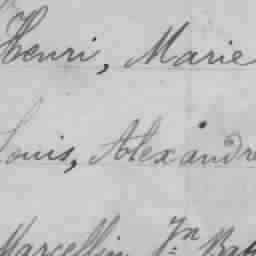 Henri, Marie
Louis, Alexandre
Marcellin Jn Bap